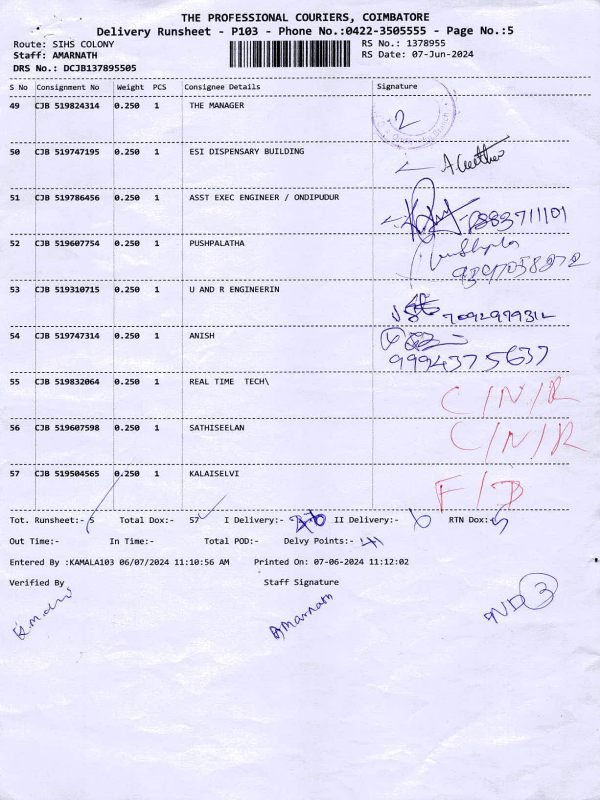 THE PROFESSIONAL COURIERS, COIMBATORE
Delivery Runsheet - P103 - Phone No.:0422-3505555 - Page No.:5
Route: SIHS COLONY RS No.: 1378955
Staff: AMARNATH RS Date: 07-Jun-2024
DRS No.: DCJB137895505
S No Consignment No Weight PCS Consignee Details Signature
49 CJB 519824314 0.250 1 THE MANAGER 2
50 CJB 519747195 0.250 1 ESI DISPENSARY BUILDING
51 CJB 519786456 0.250 1 ASST EXEC ENGINEER / ONDIPUDUR
52 CJB 519607754 0.250 1 PUSHPALATHA
53 CJB 519310715 0.250 1 U AND R ENGINEERIN
54 CJB 519747314 0.250 1 ANISH
9994375637
55 CJB 519832064 0.250 1 REAL TIME TECH\ C/N/R
56 CJB 519607598 0.250 1 SATHISEELAN C/N/R
57 CJB 519504565 0.250 1 KALAISELVI F/D
Tot. Runsheet:- 5 Total Dox:- 57 I Delivery:- II Delivery:- RTN Dox:-
Out Time:- In Time:- Total POD:- Delvy Points:- 41
Entered By :KAMALA103 06/07/2024 11:10:56 AM Printed On: 07-06-2024 11:12:02
Verified By Staff Signature
Amarnath
ND 3